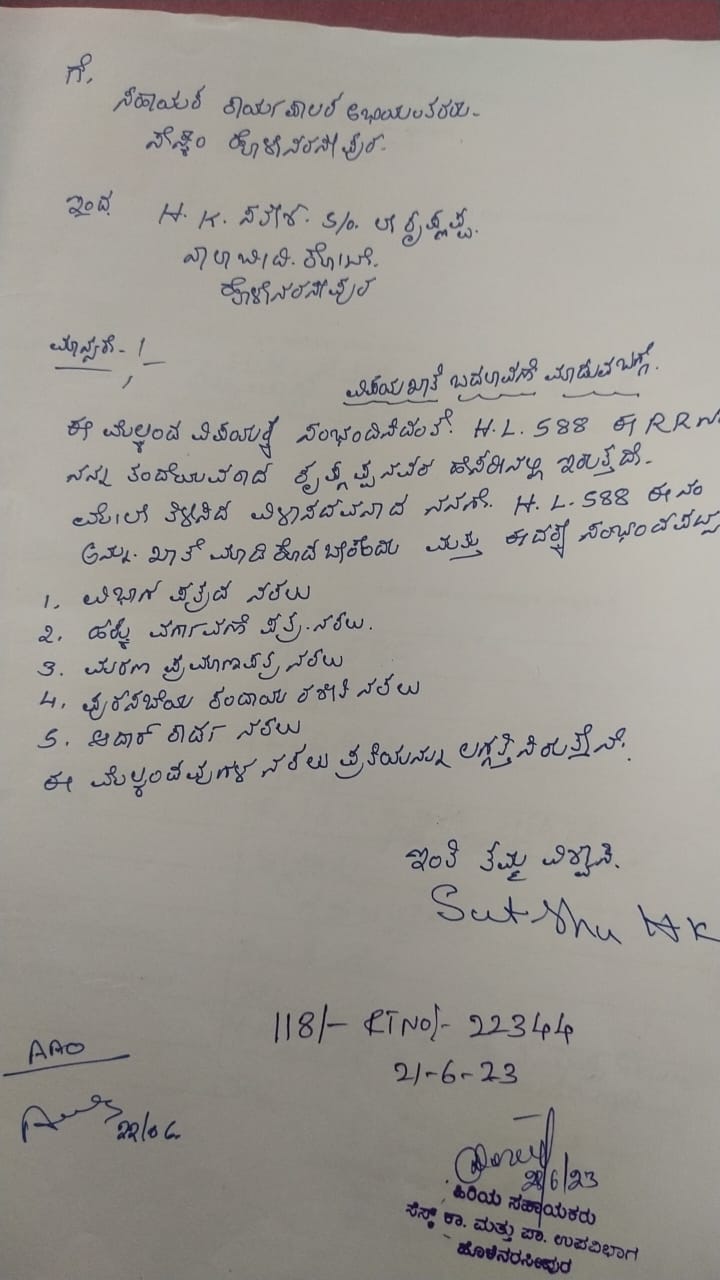 ಗೆ,
ಸಹಾಯಕ ಕಾರ್ಯಪಾಲಕ ಅಭಿಯಂತರರು.
ಸೆಸ್ಕಾಂ ಹೊಳೆನರಸೀಪುರ.
ಇಂದ, H. K. ಸತೀಶ. S/o. ಲೇ ಕೃಷ್ಣಪ್ಪ.
ಕೋಟೆ.
ಹೊಳೆನರಸೀಪುರ
ಮಾನ್ಯರೆ - !
ವಿಷಯ ಖಾತೆ ಬದಲಾವಣೆ ಮಾಡುವ ಬಗ್ಗೆ.
ಈ ಮೇಲ್ಕಂಡ ವಿಷಯಕ್ಕೆ ಸಂಭಂದಿಸಿದಂತೆ. H.L. 588 ಈ RR No
ನನ್ನ ತಂದೆಯವರಾದ ಕೃಷ್ಣಪ್ಪನವರ ಹೆಸರಿನಲ್ಲಿ ಇರುತ್ತದೆ.
ಮೇಲೆ ತಿಳಿಸಿದ ವಿಳಾಸದವನಾದ ನನಗೆ. H. L-588 ಈ ನಂ
ಅನ್ನು ಖಾತೆ ಮಾಡಿಕೊಡಬೇಕೆಂದು ಮತ್ತು ಈದಕ್ಕೆ ಸಂಭಂದಪಟ್ಟ
1. ವಿಭಾಗ ಪತ್ರದ ನಕಲು
2. ಹಕ್ಕು ವರ್ಗಾವಣೆ ಪತ್ರ ನಕಲು.
3. ಮರಣ ಪ್ರಮಾಣಪತ್ರ ನಕಲು
4. ಪುರಸಭೆಯ ಕಂದಾಯ ರಶೀತಿ ನಕಲು
5. ಆದಾರ್ ಕಾರ್ಡ್ ನಕಲು
ಈ ಮೇಲ್ಕಂಡವುಗಳ ನಕಲು ಪ್ರತಿಯನ್ನು ಲಗ್ಗತ್ತಿಸಿರುತ್ತೇನೆ.
ಇಂತಿ ತಮ್ಮ ವಿಶ್ವಾಸಿ.
Satisha HK
118/- RTNO/- 22344
21-6-23
AAO
22/06
22/6/23
ಹಿರಿಯ ಸಹಾಯಕರು
ಸೆಸ್ಕ್ ಕಾ. ಮತ್ತು ಪಾ. ಉಪವಿಭಾಗ
ಹೊಳೆನರಸೀಪುರ